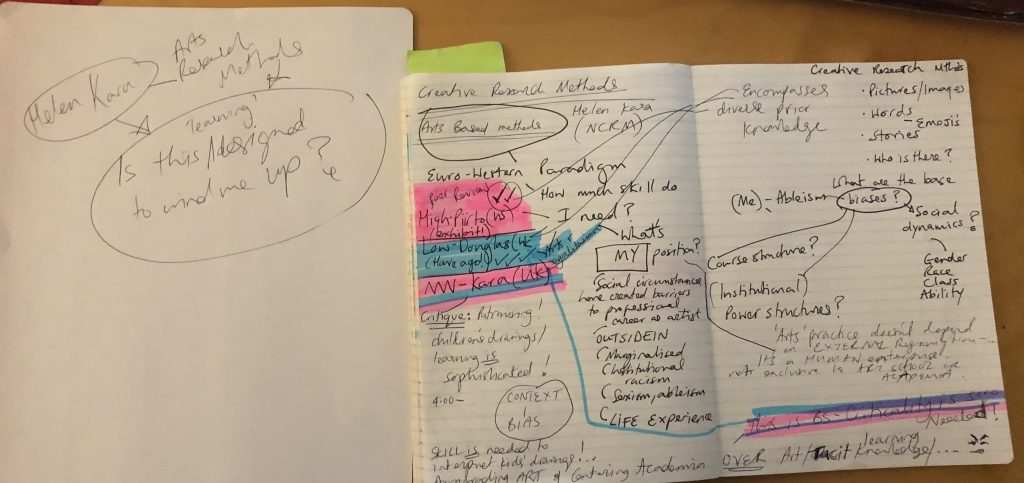 Arts
Research
Methods
Helen Kara
'learning'
Is this/designed
to wind me up?
Creative Research Methods
Arts Based methods
Helen Kara
(NCRM)
Euro-Western Paradigm
peer Review
How much skill do
High-Piirto (US)
I need?
(exhibit!)
Low-Douglas (UK
(Have a go!)
'Arts'
What's
MY position?
MW-Kara (UK)
Social circumstance
have created barriers
to professional
career as artist
OUTSIDEIN
(Marginalised
(Institutional
racism
(Sexism, ableism
(LIFE Experience
Critique: Patronising!
children's drawings/
learning IS
sophisticated!
4:00-
CONTEXT
BIAS
SKILL IS needed to
interpret kids' drawings...
ART & Centering Academia
Creative Research Mthds
Encompasses
diverse prior
knowledge
• Pictures/Images
• Words
- Emojis
• Stories
• Who is there?
What are the base
(Me)-Ableism
biases?
Social
dynamics?
Gender
Race
Class
Ability
Course structure?
Institutional
Power structures?
'Arts' practice doesn't depend
on EXTERNAL Recognition-...
Its a HUMAN enterprise
not exclusive to ART school or
ACADEMIA.
This is BS-Criticality is
Needed!
learning
OVER Art/Tacit Knowledge/....